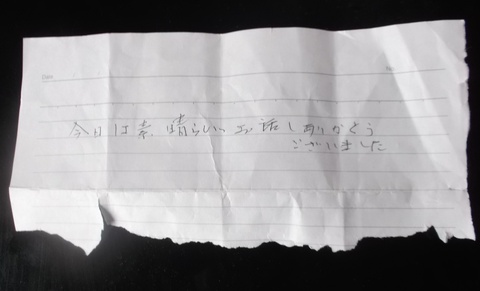 Date
今日は素晴らしいお話しありがとう
ございました